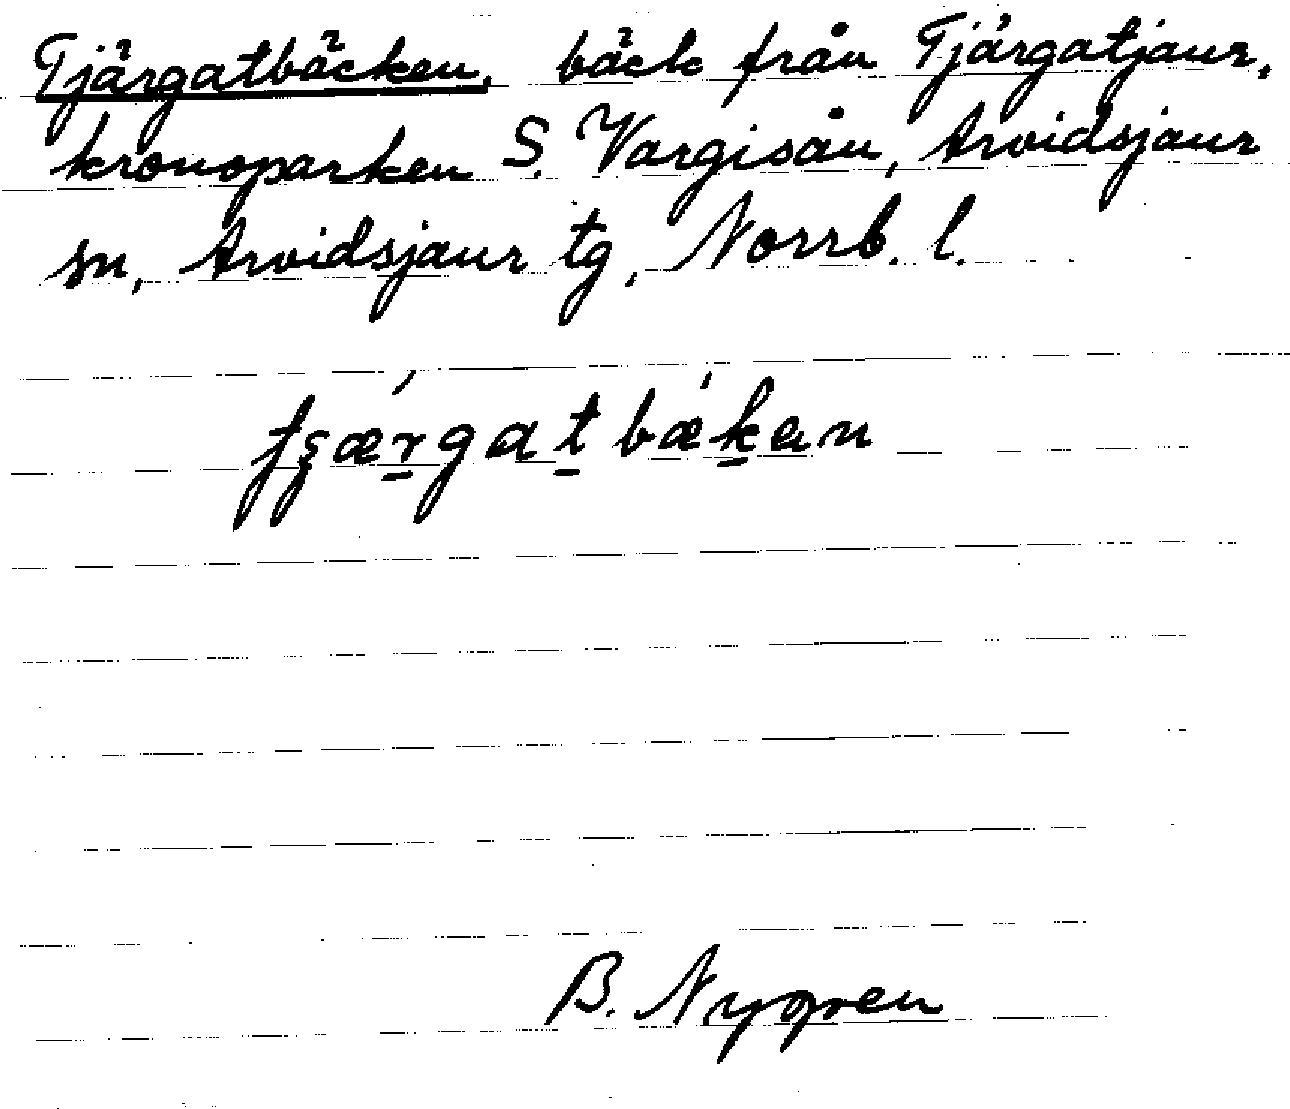 Tjärgatbäcken, bäck från Tjärgatjaur,
kronoparken S. Vargisån, Arvidsjaur
sn, Arvidsjaur tg, Norrb. l.
B. Nygren